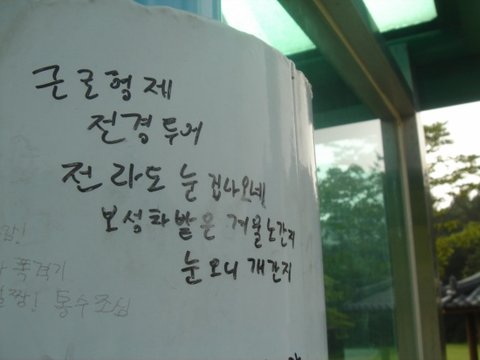 근로형제
전경투어
전라도 눈 겁나오네
보성차밭은 겨울노간지
눈오니 개간지
폭격기
똥수조심